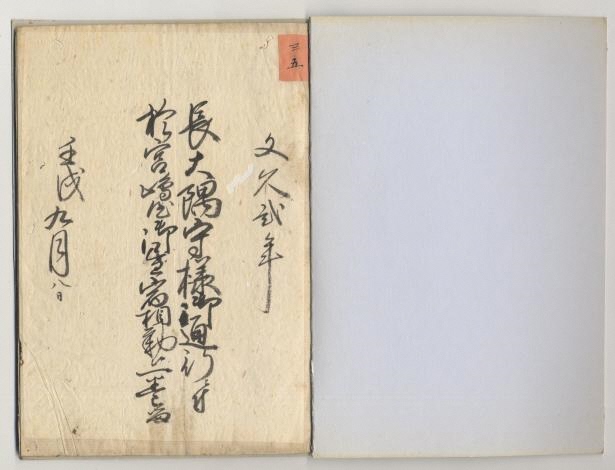 三五
文久弐年
長大隅守様御通行ニ付
於宮嶋御泊宿相勤一巻留
壬戌九月八日